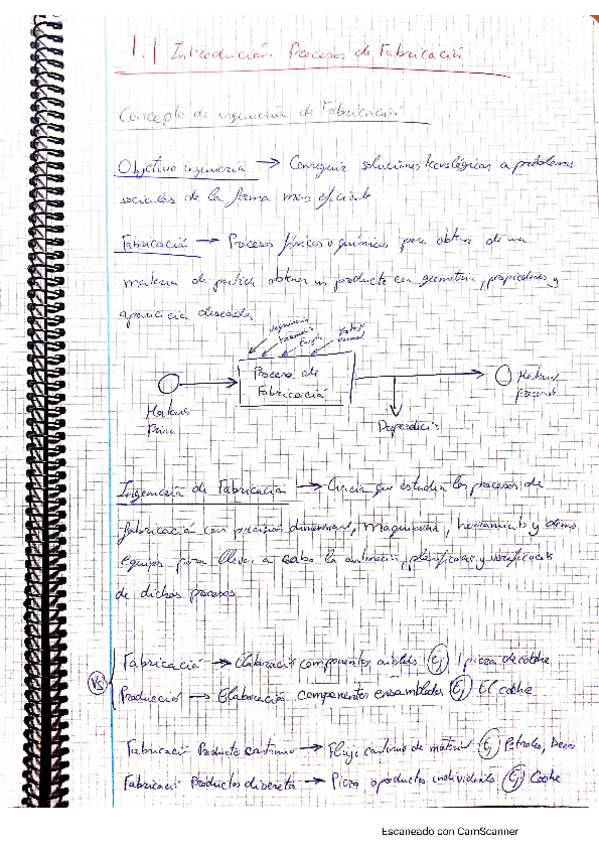 1.1 Introducción Procesos de Fabricación
Concepto de ingeniería de Fabricación
Objetivo ingeniería → Conseguir soluciones tecnológicas a problemas
sociales de la forma mas eficiente
Fabricación → Procesos físicos o químicos para obtener de una
materia de partida obtener un producto con geometría, propiedades y
apariencia deseada
Maquinaria
Herramienta
Energía
Trabajo
manual
Proceso de
Fabricación
Materia
Prima
Material
procesado
Desperdicio
Ingeniería de Fabricación → Ciencia que estudia los procesos de
fabricación con precisión dimensional, maquinaria, herramienta y demás
equipos para llevar a cabo la planificación y verificación
de dichos procesos
Vs
Fabricación → Elaboración componentes aislados Ej 1 pieza de coche
Producción → Elaboración componentes ensamblados Ej El coche
Fabricación Producto continuo → Flujo continuo de material Ej Petroleo,
Fabricación Productos discreta → Pieza o productos individuales Ej Coche
Escaneado con CamScanner